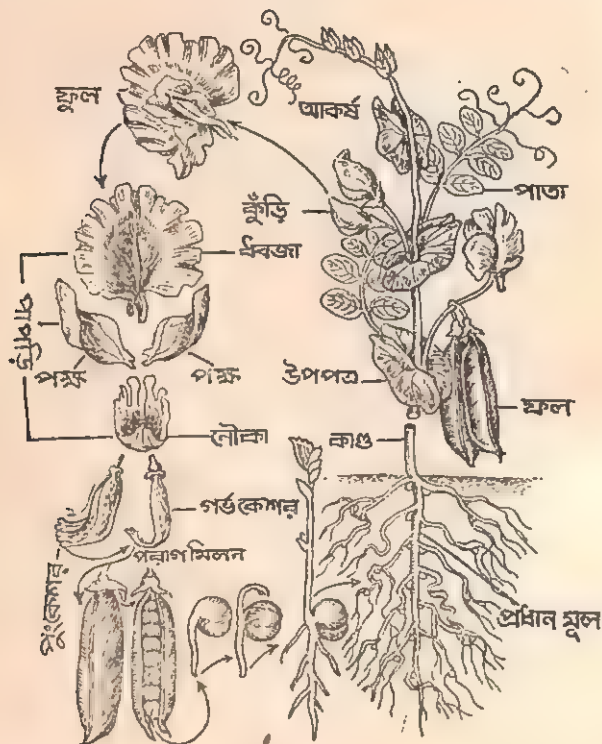 ফুল
আকর্ষ
পাতা
কুঁড়ি
ধবজা
পাপড়ি
পক্ষ
পক্ষ
উপপত্র
ফল
নৌকা
কাণ্ড
গর্ভকেশর
পরাগ মিলন
পুংকেশর
প্রধান মূল